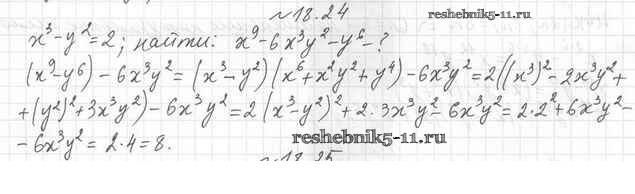 №18.24
reshebnik5-11.ru
x³-y²=2; найти: x⁹-6x³y²-y⁶-?
(x⁹-y⁶)-6x³y²=(x³-y²)(x⁶+x²y²+y⁴)-6x³y²=2((x³)²-2x³y²+
+(y²)²+3x³y²)-6x³y²=2(x³-y²)²+2·3x³y²-6x³y²=2·2²+6x³y²-
-6x³y²=2·4=8.
reshebnik5-11.ru
№18.25